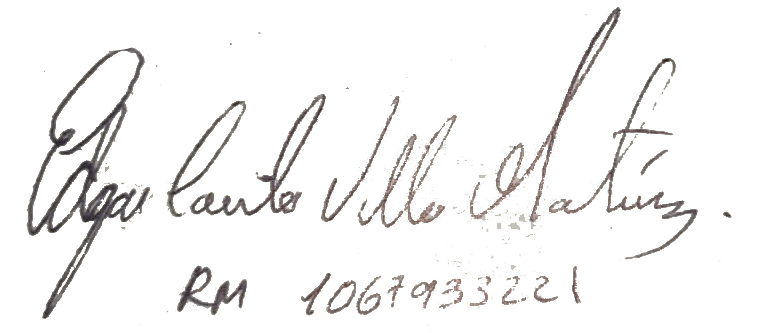 Edgar Camilo Villa Martínez.
RM 1067933221